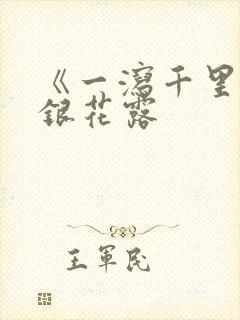 《一瀉千里
銀花露
王軍民